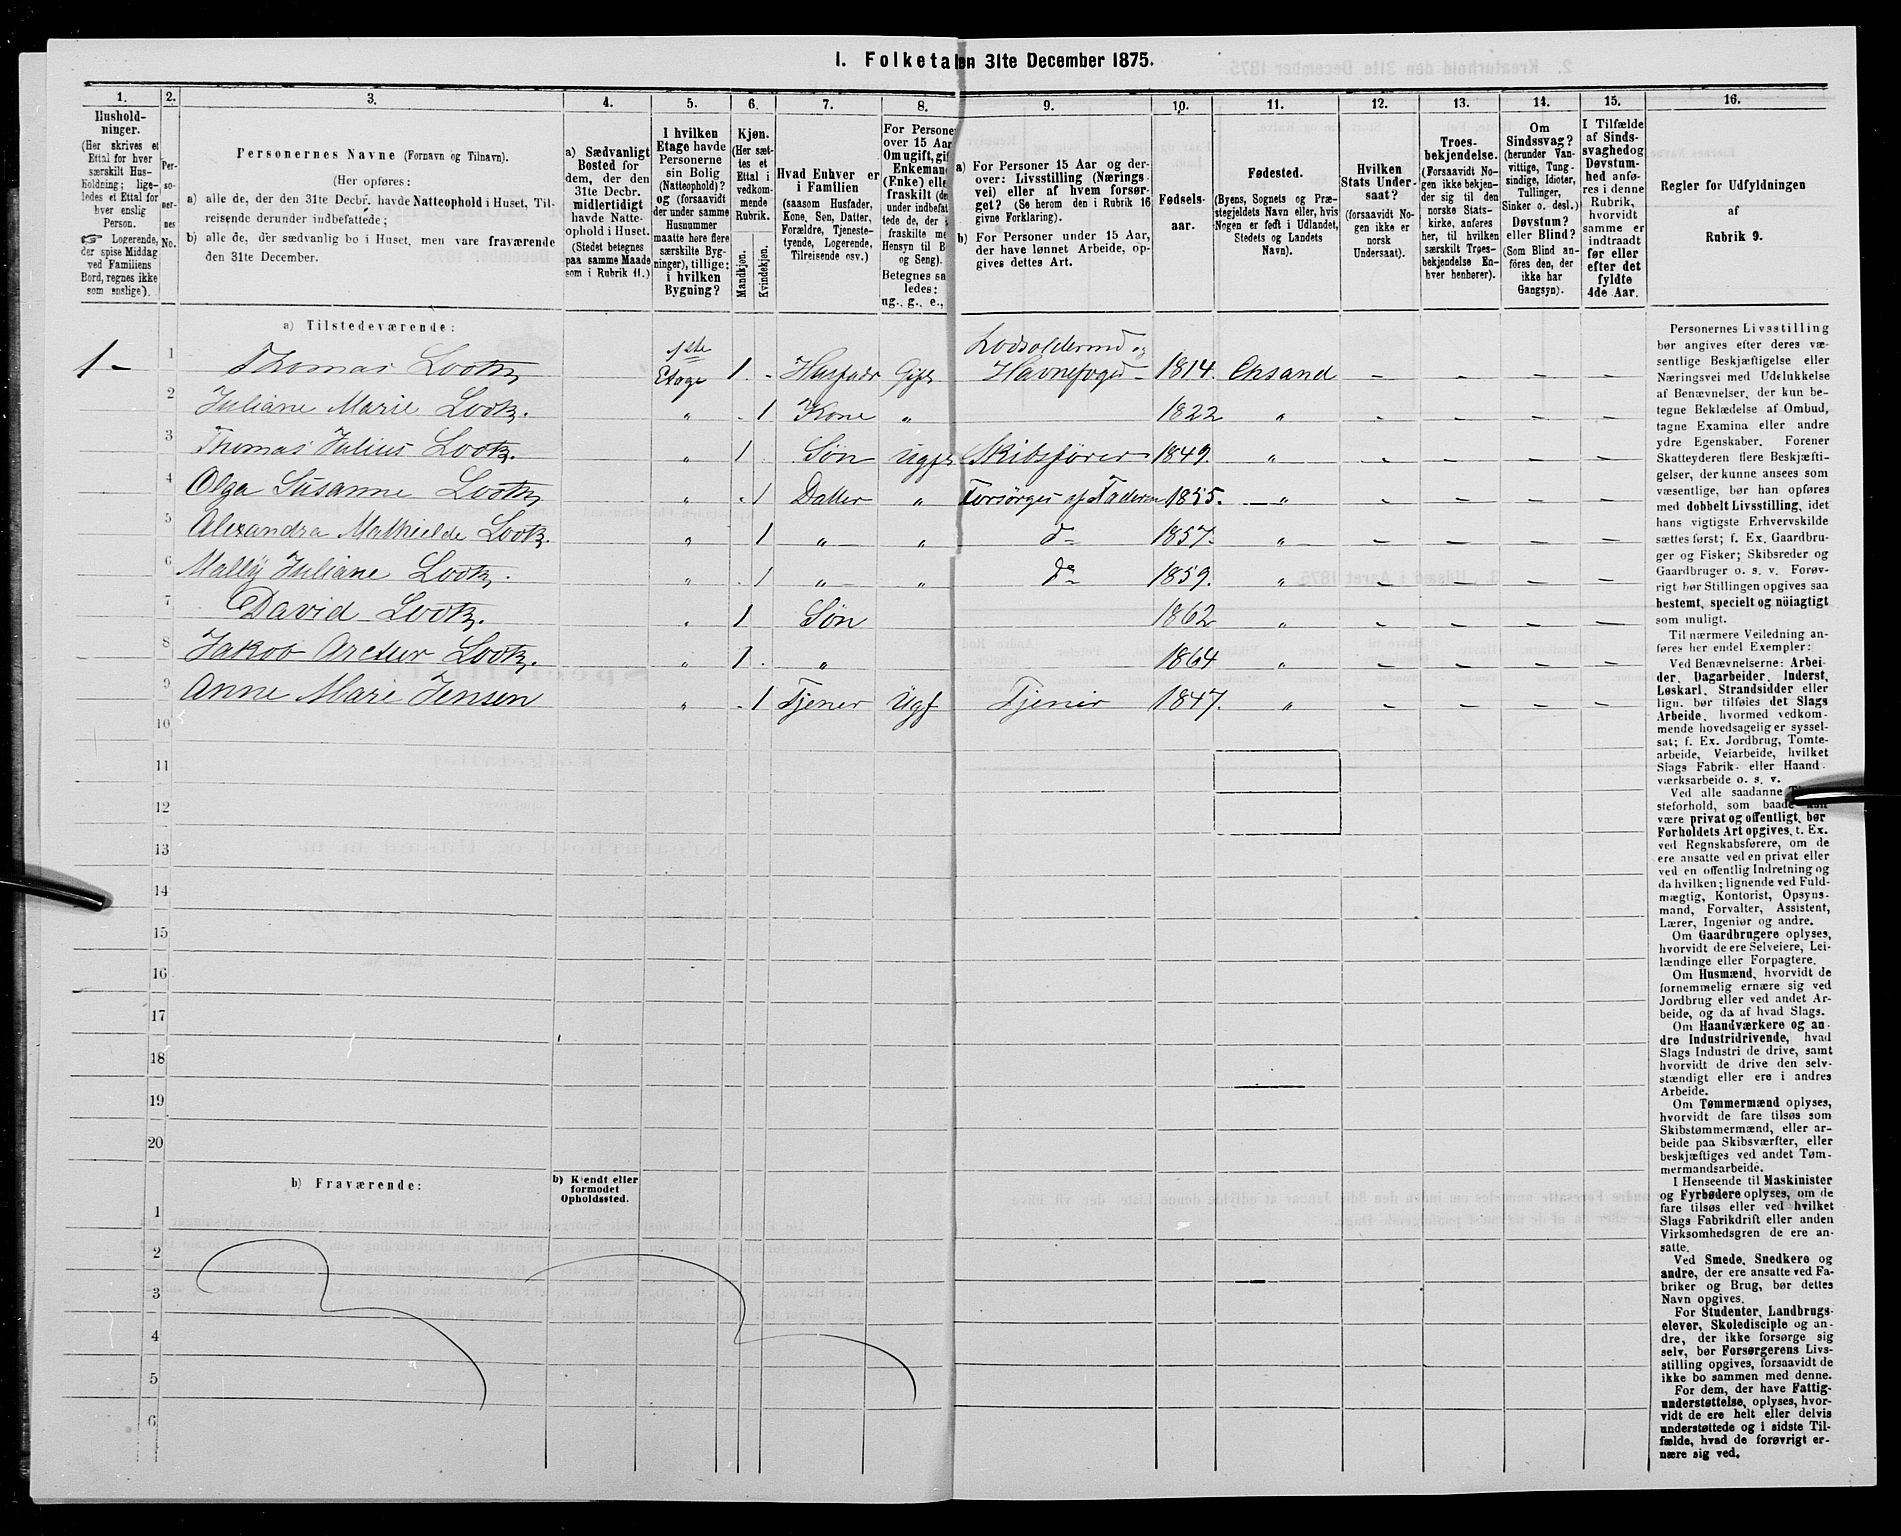 I. Folketal den 31te December 1875.
1. 2. 3. 4. 5. 6. 7. 8. 9. 10. 11. 12. 13. 14. 15. 16.
Hushold-
ninger.
(Her skrives et
Ettal for hver
særskilt Hus-
holdning; lige-
ledes et Ettal for
hver enslig
Person.
Logerende,
der spise Middag
ved Familiens
Bord, regnes ikke
som enslige).
Per-
so-
ner-
nes
No.
Personernes Navne (Fornavn og Tilnavn).
(Her opføres:
a) alle de, der den 31te Decbr. havde Natteophold i Huset, Til-
reisende derunder indbefattede;
b) alle de, der sædvanlig bo i Huset, men vare fraværende
den 31te December.
a) Sædvanligt
Bosted for
dem, der den
31te Decbr.
midlertidigt
havde Natte-
ophold i Huset.
(Stedet betegnes
paa samme Maade
som i Rubrik 11.)
I hvilken
Etage havde
Personerne
sin Bolig
(Natteophold)?
og (forsaavidt
der under samme
Husnummer
maatte høre flere
særskilte Byg-
ninger), tillige:
i hvilken
Bygning?
Kjøn.
(Her sæt-
tes et
Ettal i
vedkom-
mende
Rubrik.
Mandkjøn.
Kvindekjøn.
Hvad Enhver er
i Familien
(saasom Husfader,
Kone, Søn, Datter,
Forældre, Tjeneste-
tyende, Logerende,
Tilreisende osv.)
For Persone
over 15 Aar
Om ugift, gif
Enkemand
(Enke) elle
fraskilt (de
under indbefat
tede de, der i
fraskilte me
Hensyn til B
og Seng).
Betegnes sa
ledes:
ug., g., e.,
a) For Personer 15 Aar og der-
over: Livsstilling (Nærings-
vei) eller af hvem forsør-
get? (Se herom den i Rubrik 16
givne Forklaring).
b) For Personer under 15 Aar,
der have lønnet Arbeide, op-
gives dettes Art.
Fødsels-
aar.
Fødested.
(Byens, Sognets og Præ-
stegjeldets Navn eller, hvis
Nogen er født i Udlandet,
Stedets og Landets
Navn).
Hvilken
Stats Under-
saat?
(forsaavidt No-
gen ikke er
norsk
Undersaat).
Troes-
bekjendelse.
(Forsaavidt No-
gen ikke bekjen-
der sig til den
norske Stats-
kirke, anføres
her, til hvilken
særskilt Troes-
bekjendelse En-
hver henhører).
Om
Sindssvag?
(herunder Van-
vittige, Tung-
sindige, Idioter,
Tullinger,
Sinker o. desl.)
Døvstum?
eller Blind?
(Som Blind an-
føres den, der
ikke har
Gangsyn).
I Tilfælde
af Sinds-
svaghed og
Døvstum-
hed anfø-
res i denne
Rubrik,
hvorvidt
samme er
indtraadt
før eller
efter det
fyldte
4de Aar.
Regler for Udfyldningen
af
Rubrik 9.
a) Tilstedeværende:
1 - 1 Thomas Lootz 1ste Etage 1 - Husfadr Gift Lodsoldermd og Havnefoged - 1814. Chsand - - - -
2 Juliane Marie Lootz. " - 1 Kone " 1822 " - - - -
3 Thomas Julius Lootz. " 1 Søn Ugift Skibsfører 1849. " - - - -
4 Olga Susanne Lootz " - 1 Datter " Forsørges af Faderen 1855. " - - - -
5 Alexandra Mathielde Lootz. " 1 " " do 1857. " - - - -
6 Mally Juliane Lootz. " - 1 " " do 1859. " - - - -
7 David Lootz. " 1 Søn 1862 " - - - -
8 Jakob Arctur Lootz. " 1 - " 1864 " - - - -
9 Anne Marie Jensen " - 1 Tjener Ugf Tjener 1847. " - - - -
10
11
12
13
14
15
16
17
18
19
20
b) Fraværende:
b) Kjendt eller
formodet
Opholdssted.
1
2
3
4
5
6
Personernes Livsstilling
bør angives efter deres væ-
sentlige Beskjæftigelse eller
Næringsvei med Udelukkelse
af Benævnelser, der kun be-
tegne Beklædelse af Ombud,
tagne Examina eller andre
ydre Egenskaber. Forener
Skatteyderen flere Beskjæfti-
gelser, der kunne ansees som
væsentlige, bør han opføres
med dobbelt Livsstilling, idet
hans vigtigste Erhvervskilde
sættes først; f. Ex. Gaardbru-
ger og Fisker; Skibsreder og
Gaardbruger o. s. v. Forøv-
rigt bør Stillingen opgives saa
bestemt, specielt og nöiagtigt
som muligt.
Til nærmere Veiledning an-
føres her endel Exempler:
Ved Benævnelserne: Arbei-
der, Dagarbeider, Inderst,
Løskarl, Strandsidder eller
lign. bør tilføies det Slags
Arbeide, hvormed vedkom-
mende hovedsagelig er syssel-
sat; f. Ex. Jordbrug, Tomte-
arbeide, Veiarbeide, hvilket
Slags Fabrik- eller Haand-
værksarbeide o. s. v.
Ved alle saadanne
steforhold, som baade kan
være privat og offentligt, bør
Forholdets Art opgives, t. Ex.
ved Regnskabsførere, om de
ere ansatte ved en privat eller
ved en offentlig Indretning og
da hvilken; lignende ved Fuld-
mægtig, Kontorist, Opsyns-
mand, Forvalter, Assistent,
Lærer, Ingeniør og andre.
Om Gaardbrugere oplyses,
hvorvidt de ere Selveiere, Lei-
lændinge eller Forpagtere.
Om Husmænd, hvorvidt de
fornemmelig ernære sig ved
Jordbrug eller ved andet Ar-
beide, og da af hvad Slags.
Om Haandværkere og an-
dre Industridrivende, hvad
Slags Industri de drive, samt
hvorvidt de drive den selv-
stændigt eller ere i andres
Arbeide.
Om Tømmermænd oplyses,
hvorvidt de fare tilsøs som
Skibstømmermænd, eller ar-
beide paa Skibsværfter, eller
beskjæftiges ved andet Tøm-
mermandsarbeide.
I Henseende til Maskinister
og Fyrbødere oplyses, om de
fare tilsøs eller ved hvilket
Slags Fabrikdrift eller anden
Virksomhedsgren de ere an-
satte.
Ved Smede, Snedkere og
andre, der ere ansatte ved Fa-
briker og Brug, bør dettes
Navn opgives.
For Studenter, Landbrugs-
elever, Skoledisciple og an-
dre, der ikke forsørge sig
selv, bør Forsørgerens Livs-
stilling opgives, forsaavidt de
ikke bo sammen med denne.
For dem, der have Fattig-
understøttelse, oplyses, hvor-
vidt de ere helt eller delvis
understøttede og i sidste Til-
fælde, hvad de forøvrigt er-
nære sig ved.